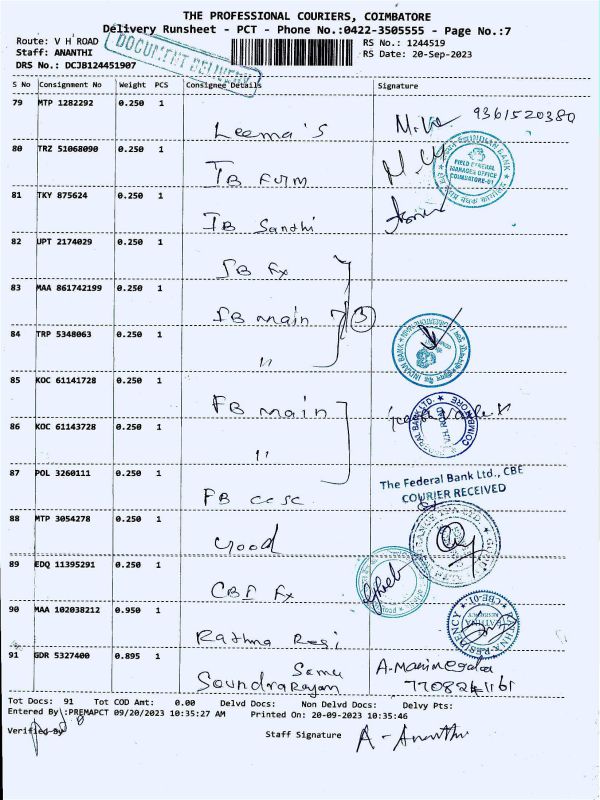 THE PROFESSIONAL COURIERS, COIMBATORE
Delivery Runsheet - PCT - Phone No.:0422-3505555 - Page No.:7
Route: V H ROAD
RS No.: 1244519
Staff: ANANTHI
RS Date: 20-Sep-2023
DRS No.: DCJB124451907
DOCUMENT DELIVERY
S No Consignment No Weight PCS Consignee Details Signature
79 MTP 1282292 0.250 1
Leema's 9361520380
80 TRZ 51068090 0.250 1
IB FURM
INDIAN BANK
FIELD GENERAL
MANAGER OFFICE
COIMBATORE-01
81 TKY 875624 0.250 1
IB Sandhi
82 UPT 2174029 0.250 1
IB Fx
83 MAA 861742199 0.250 1
IB main 3
84 TRP 5348063 0.250 1
"
INDIAN BANK
85 KOC 61141728 0.250 1
FB main
86 KOC 61143728 0.250 1
"
87 POL 3260111 0.250 1
The Federal Bank Ltd., CBE
COURIER RECEIVED
FB
88 MTP 3054278 0.250 1
89 EDQ 11395291 0.250 1
Fx
90 MAA 102038212 0.950 1
Rathna Regi
RATHNA RESIDENCY
CBE-01
91 GDR 5327400 0.895 1
Soundrarajan
7708241161
Tot Docs: 91 Tot COD Amt: 0.00 Delvd Docs: Non Delvd Docs: Delvy Pts:
Entered By :PREMAPCT 09/20/2023 10:35:27 AM Printed On: 20-09-2023 10:35:46
Verified By
Staff Signature A - Ananthi